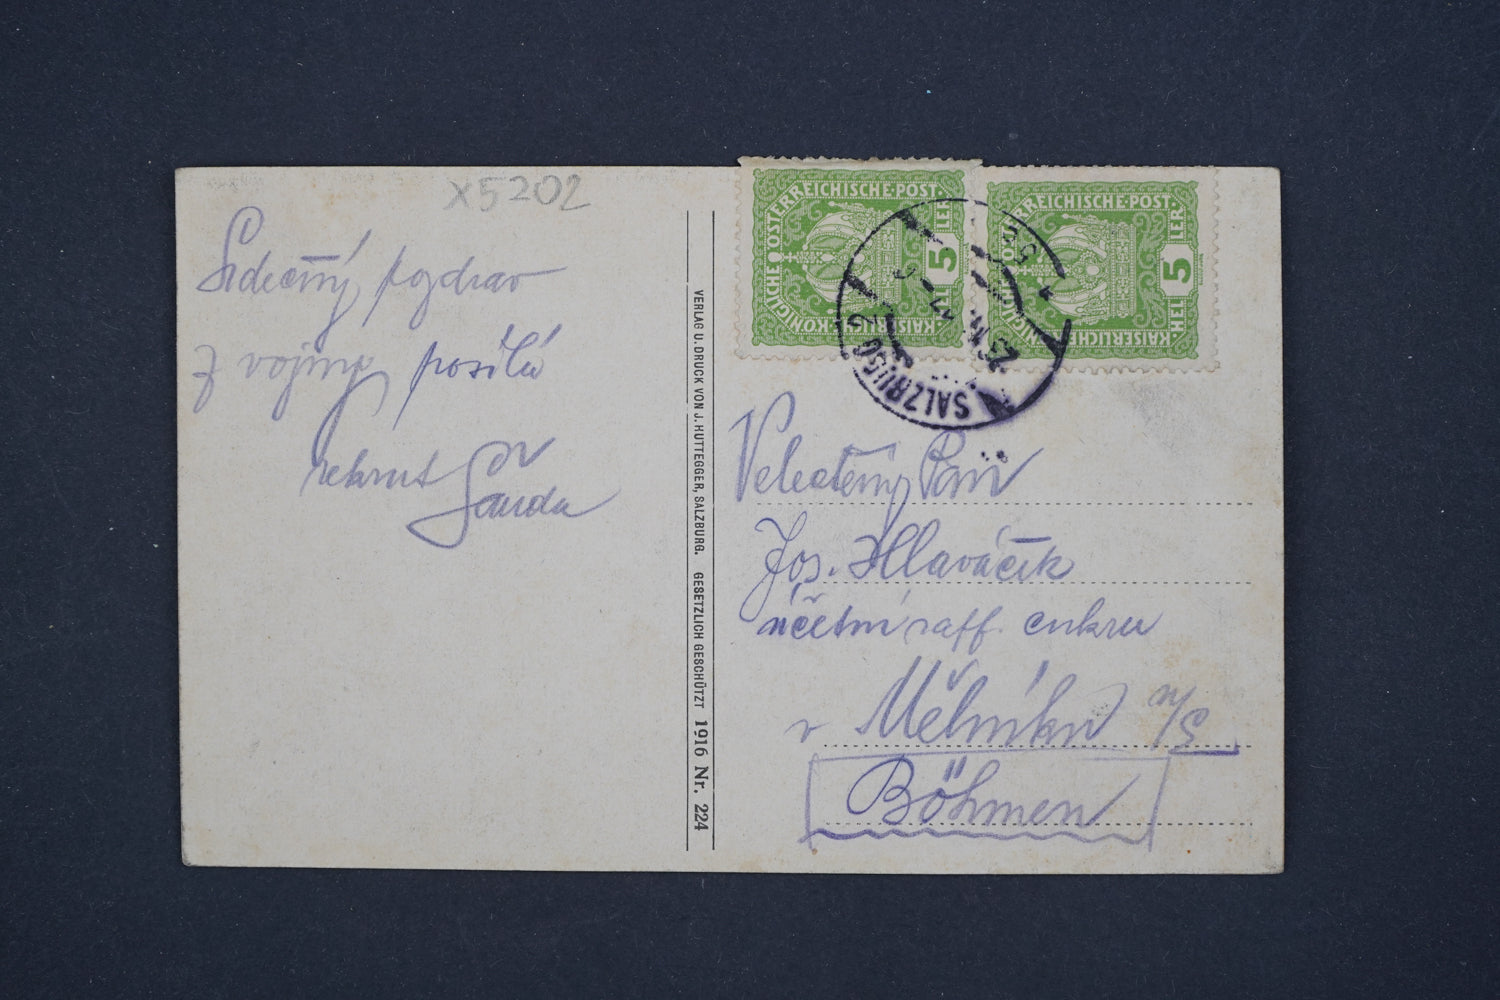 X5202
Srdečný pozdrav
z vojny posílá
rekrut Šanda
VERLAG U. DRUCK VON J. HUTTEGGER, SALZBURG. GESETZLICH GESCHÜTZT 1916 Nr. 224
KAISERLICHE KÖNIGLICHE ÖSTERREICHISCHE·POST·
5 HELLER
KAISERLICHE KÖNIGLICHE ÖSTERREICHISCHE·POST·
5 HELLER
SALZBURG 2
Velectěný Pan
Jos. Hlaváček
účetní raff. cukru
v Mělníku n/S
Böhmen